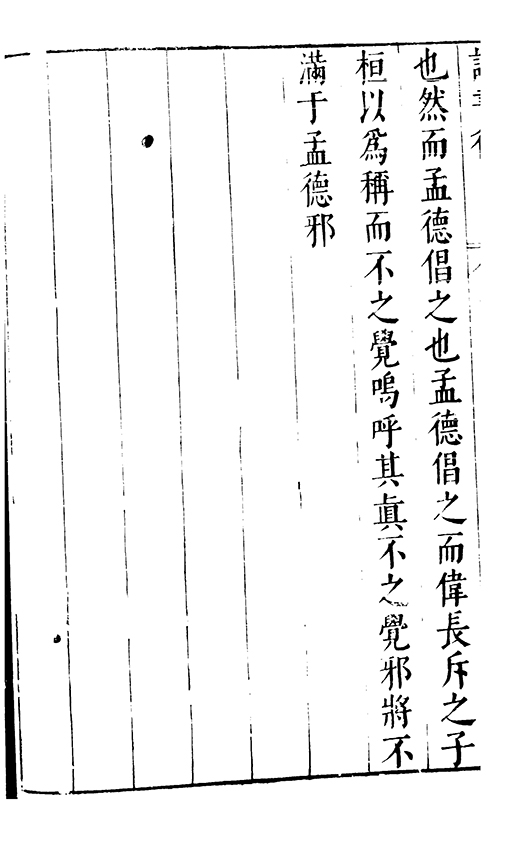 也然而孟德倡之也孟德倡之而偉長斥之子
桓以爲稱而不之覺嗚呼其眞不之覺邪將不
滿于孟德邪